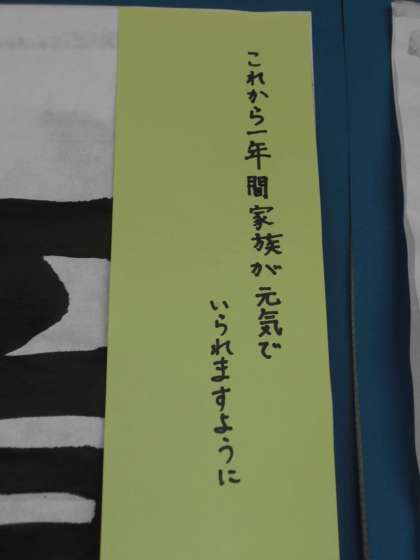 これから一年間家族が元気で
いられますように